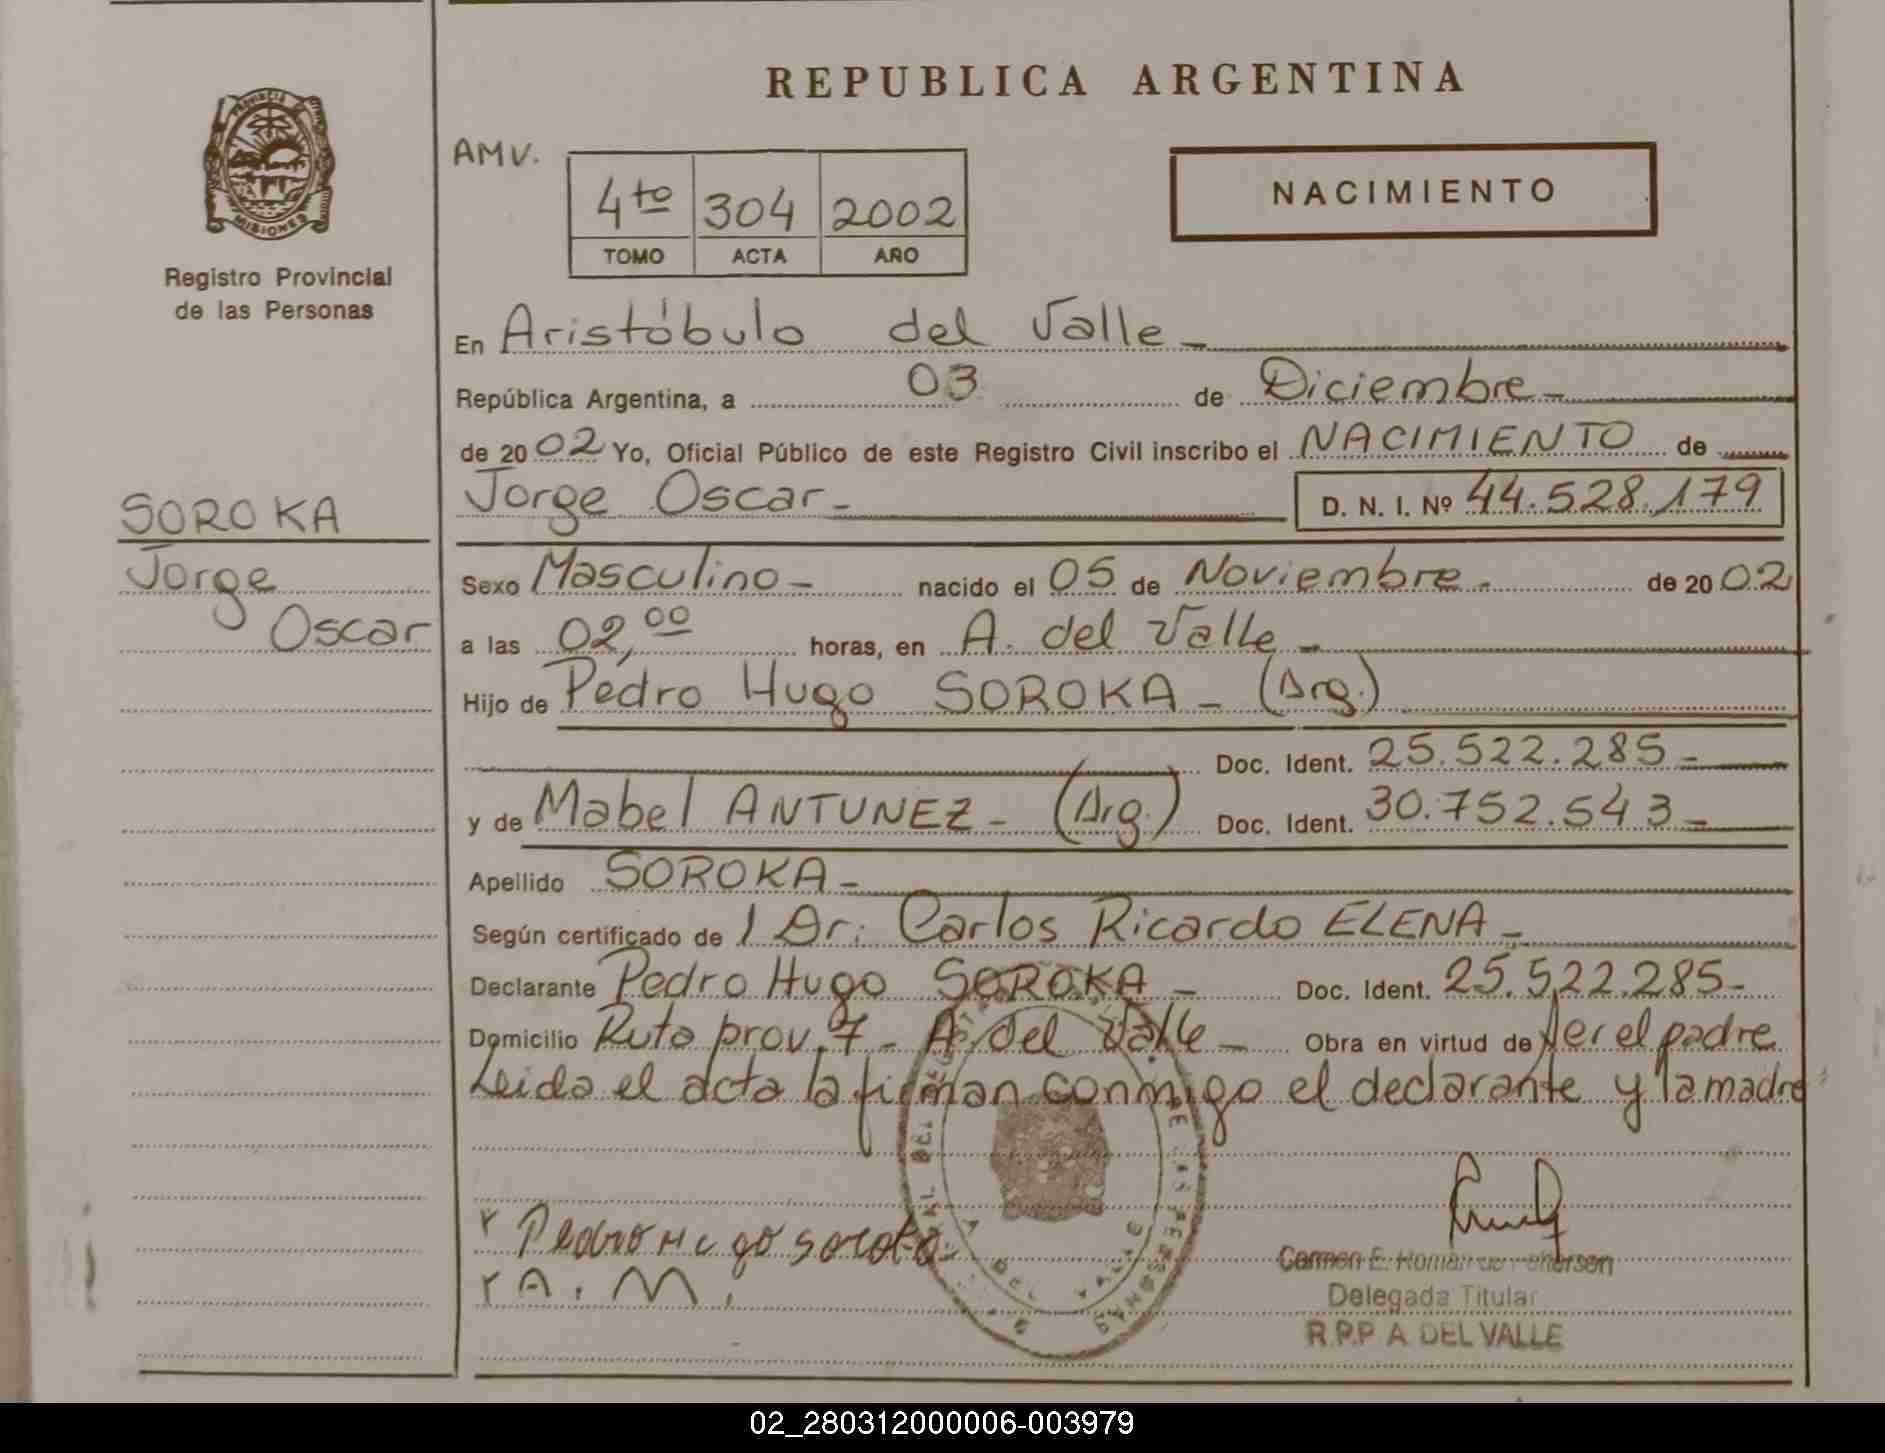 REPUBLICA ARGENTINA
PROVINCIA
MISIONES
Registro Provincial
de las Personas
AMV.
4to 304 2002
TOMO ACTA AÑO
NACIMIENTO
En Aristóbulo del Valle -
República Argentina, a 03 de Diciembre -
de 2002 Yo, Oficial Público de este Registro Civil inscribo el NACIMIENTO de
Jorge Oscar - D. N. I. Nº 44.528.179
SOROKA
Jorge
Oscar
Sexo Masculino - nacido el 05 de Noviembre - de 2002
a las 02,00 horas, en A. del Valle -
Hijo de Pedro Hugo SOROKA - (Arg.)
Doc. Ident. 25.522.285 -
y de Mabel ANTUNEZ - (Arg.) Doc. Ident. 30.752.543 -
Apellido SOROKA -
Según certificado de / Dr. Carlos Ricardo ELENA -
Declarante Pedro Hugo SOROKA - Doc. Ident. 25.522.285 -
Domicilio Ruta prov. 7 - A. del Valle - Obra en virtud de ser el padre
Leida el acta la firman conmigo el declarante y la madre
Pedro Hugo soroka
A. M.
Carmen E. Román de
Delegada Titular
R.P.P A DEL VALLE
02_280312000006-003979